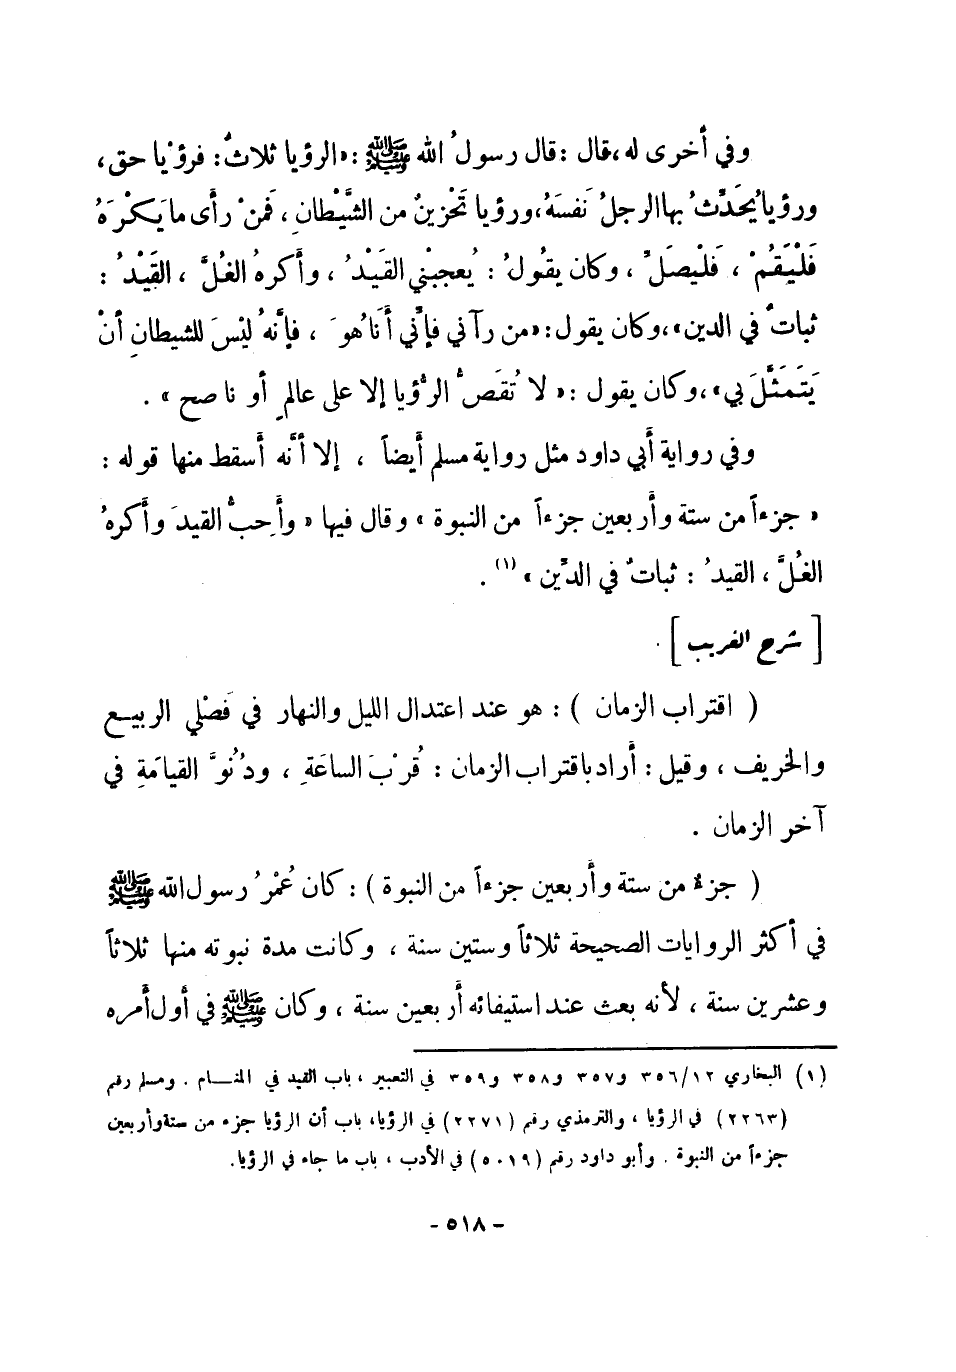 وفي أخرى له، قال : قال رسولُ الله ﷺ : «الرؤيا ثلاثٌ : فرؤْيا حق،
ورؤيا يُحَدِّثُ بها الرجلُ نَفسَهُ، ورؤيا تَحْزِينٌ من الشَّيْطانِ ، فَمنْ رأَى ما يَكْرَهُ
فَلْيَقُمْ ، فَلْيصَلِّ ، وكان يقُولُ : يُعجبْني القَيْدُ ، وأَكرهُ الغُلَّ ، القَيْدُ :
ثباتٌ في الدين»، وكان يقول : «من رآني فإنِّي أَنَا هُوَ ، فإنَّهُ ليْسَ للشيطانِ أنْ
يَتَمَثَّلَ بي»، وكان يقول : « لا تُقَصُّ الرُّؤيا إلا على عالمٍ أو ناصح » .
وفي رواية أَبي داود مثل رواية مسلم أَيضاً ، إلا أنَّه أَسقط منها قوله :
« جزءاً من ستة وأَربعين جزءاً من النبوة » وقال فيها « وأُحِبُّ القيدَ وأَكرهُ
الغُلَّ ، القيدُ : ثباتٌ في الدِّين » (١) .
[ شرح الغريب ]
( اقتراب الزمان ) : هو عند اعتدال الليل والنهار في فَصْلي الربيع
والخريف ، وقيل : أَراد باقتراب الزمان : قُرْبَ الساعَةِ ، ودُنُوَّ القيامَةِ في
آخر الزمان .
( جزءٌ من ستة وأَربعين جزءاً من النبوة ) : كان عُمْرُ رسول الله ﷺ
في أكثر الروايات الصحيحة ثلاثاً وستين سنة ، وكانت مدة نبوته منها ثلاثاً
وعشرين سنة ، لأنه بعث عند استيفائه أَربعين سنة ، وكان ﷺ في أول أَمره
(١) البخاري ١٢/٣٥٦ و٣٥٧ و٣٥٨ و٣٥٩ في التعبير ، باب القيد في المنـام . ومسلم رقم
(٢٢٦٣) في الرؤيا ، والترمذي رقم (٢٢٧١) في الرؤيا، باب أن الرؤيا جزء من ستة وأربعين
جزءاً من النبوة . وأبو داود رقم (٥٠١٩) في الأدب ، باب ما جاء في الرؤيا.
- ٥١٨ -